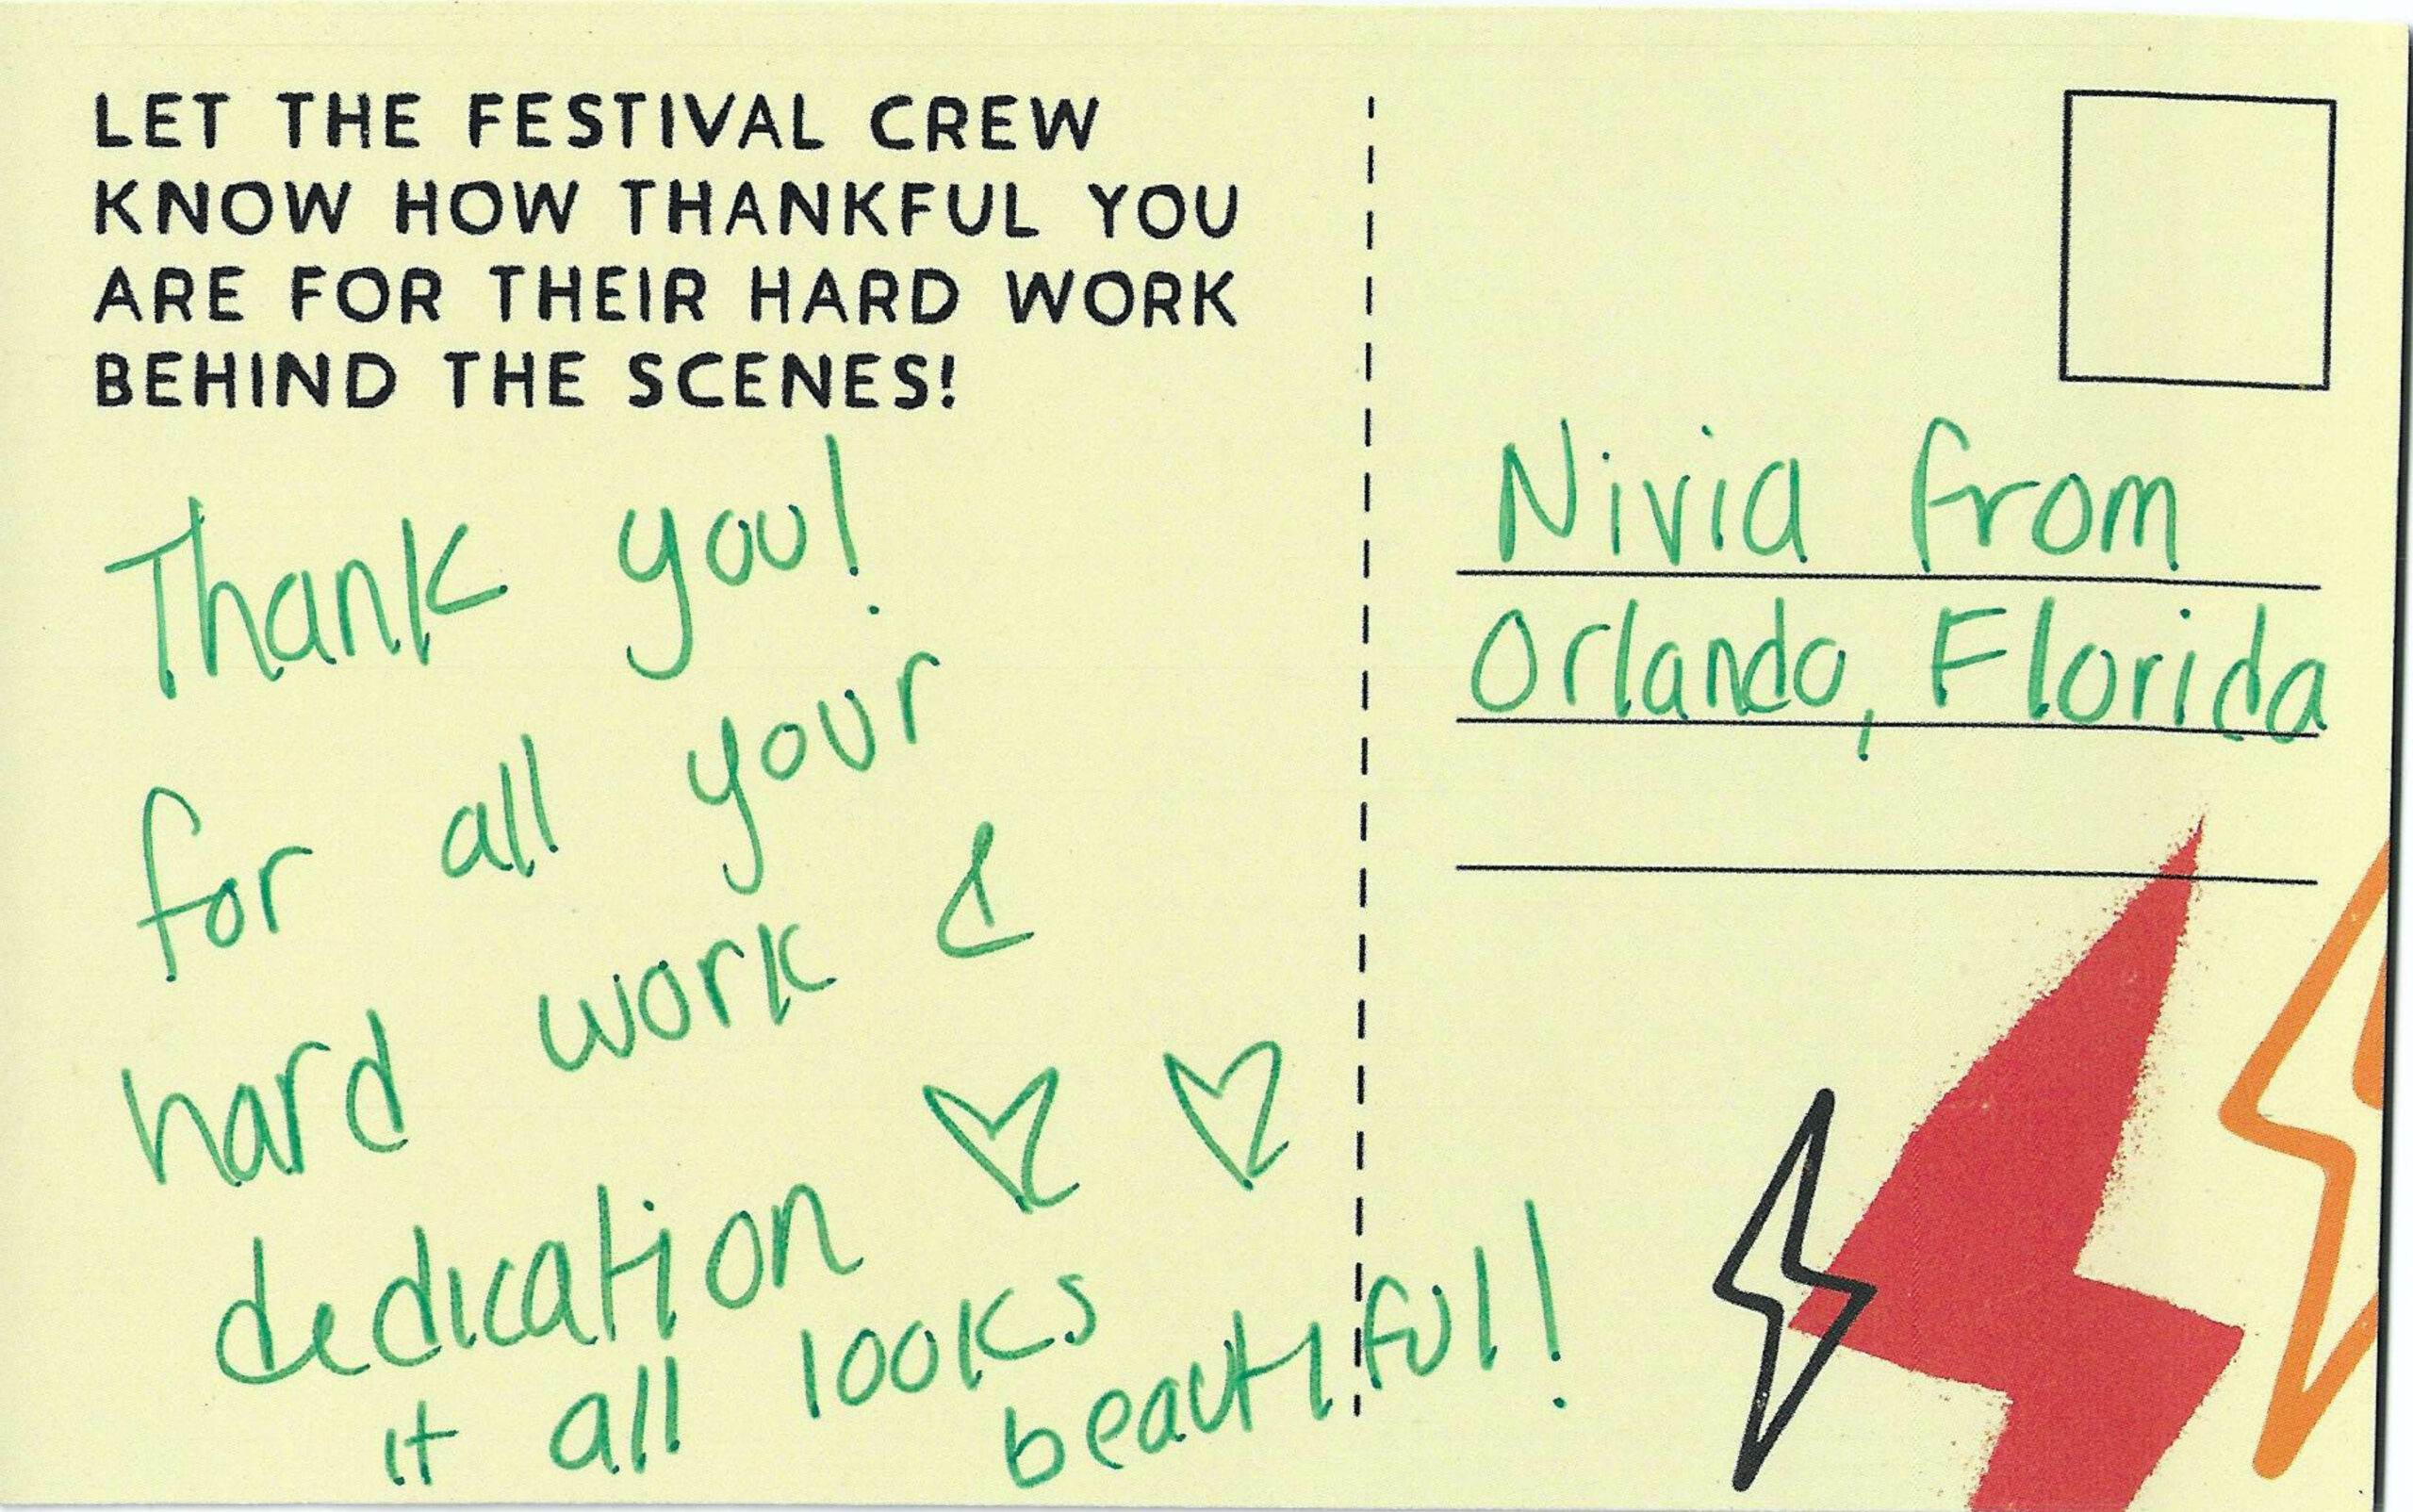 LET THE FESTIVAL CREW
KNOW HOW THANKFUL YOU
ARE FOR THEIR HARD WORK
BEHIND THE SCENES!
Thank you!
for all your
hard work &
dedication
it all looks
beautiful!
Nivia from
Orlando, Florida